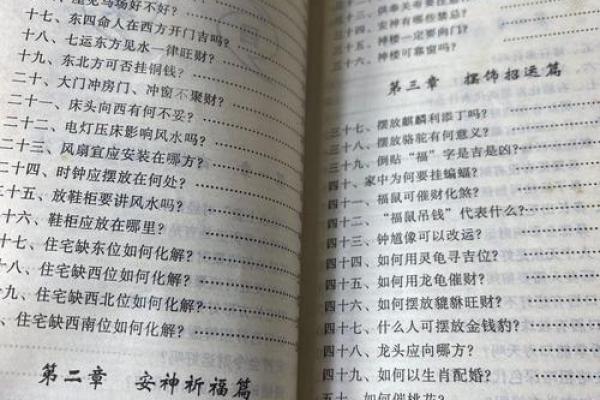 十七、东四命人在西方开门吉吗?
十八、七运东方见水一律旺财?
十九、东北方可否挂铜钱?
二十、大门冲房门、冲窗不聚财?
二十一、床头向西有何不妥?
二十二、电灯压床影响风水吗?
二十三、风扇宜应安装在哪方?
二十四、时钟应摆放在何处?
二十五、放鞋柜要讲风水吗?
十六、鞋柜应放在哪里?
十七、住宅缺东位如何化解?
十八、住宅缺西位如何化解?
九、住宅缺西北位如何化解?
住宅缺西南位如何化解?
第二章 安神祈福篇
三十四、安神有哪些禁忌?
三十五、神楼一定要向门?
三十六、神楼可靠窗吗?
第三章 摆饰招运篇
三十七、摆放麒麟利添丁吗?
三十八、摆放骆驼有何意义?
三十九、倒贴“福”字是吉是凶?
四十、家中为何要挂蝙蝠?
四十一、福鼠可催财化煞?
四十二、“福鼠吊钱”代表什么?
四十三、钟馗像可以改运?
四十四、如何用灵龟寻吉位?
四十五、如何用龙龟催财?
四十六、如何摆放貔貅旺财?
四十七、什么人可摆放金钱豹?
四十八、龙头应向哪方?
四十九、如何以生肖配婚?
五十、如何催桃花?